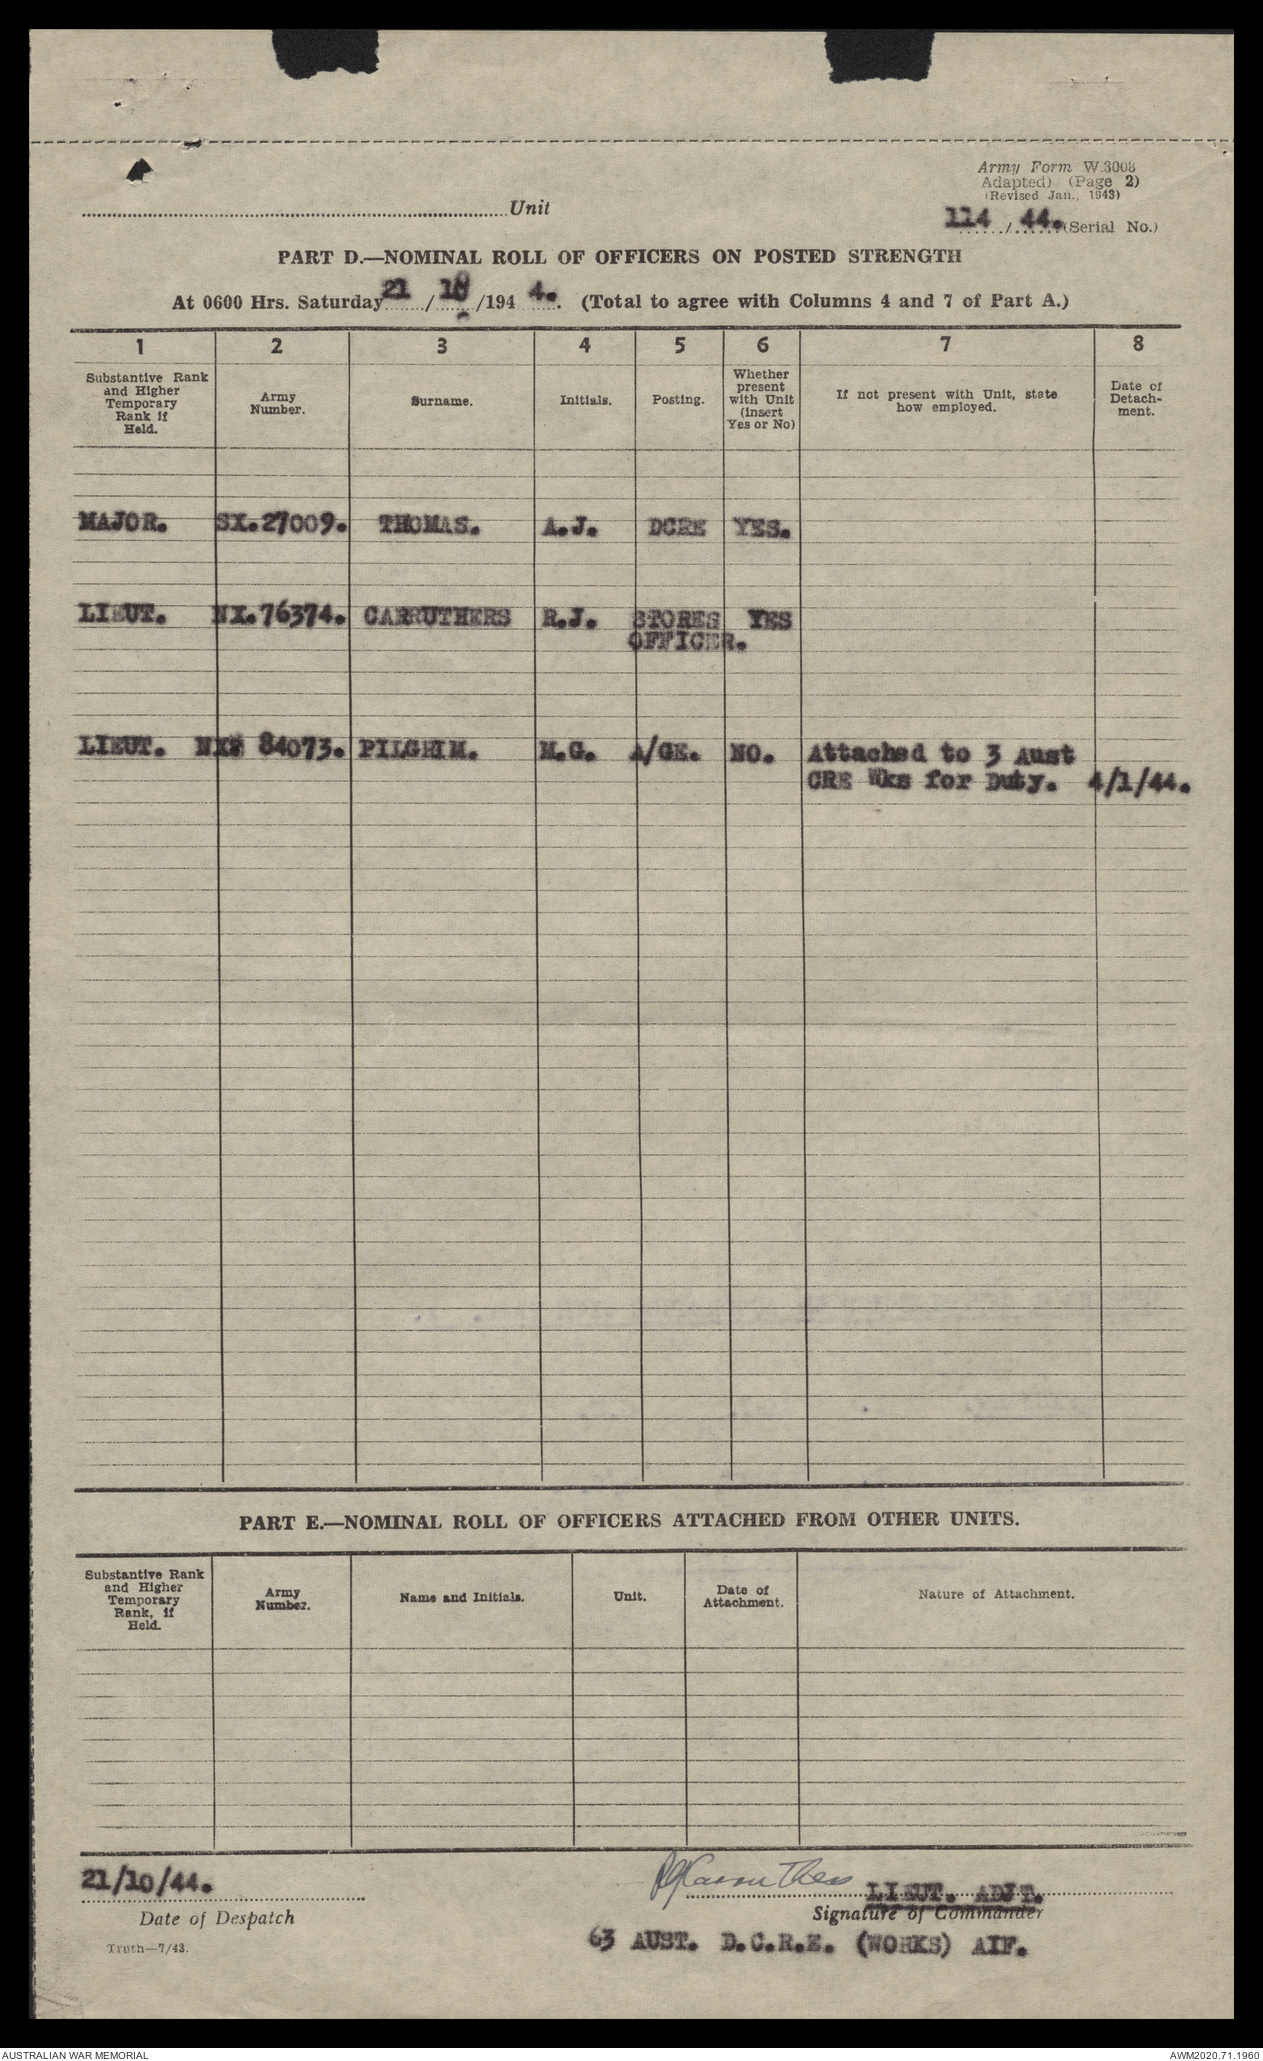 Army Form W.3008
Adapted) (Page 2)
(Revised Jan., 1943)
Unit
114 / 44. (Serial No.)
PART D.—NOMINAL ROLL OF OFFICERS ON POSTED STRENGTH
At 0600 Hrs. Saturday 21 / 10 /194 4. (Total to agree with Columns 4 and 7 of Part A.)
1 2 3 4 5 6 7 8
Substantive Rank and Higher Temporary Rank if Held.
Army Number.
Surname.
Initials.
Posting.
Whether present with Unit (insert Yes or No)
If not present with Unit, state how employed.
Date of Detachment.
MAJOR. SX.27009. THOMAS. A.J. DCRE YES.
LIEUT. NX.76374. CARRUTHERS R.J. STORES YES
OFFICER.
LIEUT. NX. 84073. PILGRIM. M.G. A/GE. NO. Attached to 3 Aust
CRE Wks for Duty. 4/1/44.
PART E.—NOMINAL ROLL OF OFFICERS ATTACHED FROM OTHER UNITS.
Substantive Rank and Higher Temporary Rank, if Held.
Army Number.
Name and Initials.
Unit.
Date of Attachment.
Nature of Attachment.
21/10/44.
Date of Despatch
RJCarruthers LIEUT. ADJT.
Signature of Commander
Truth—7/43.
63 AUST. D.C.R.E. (WORKS) AIF.
AUSTRALIAN WAR MEMORIAL
AWM2020.71.1960